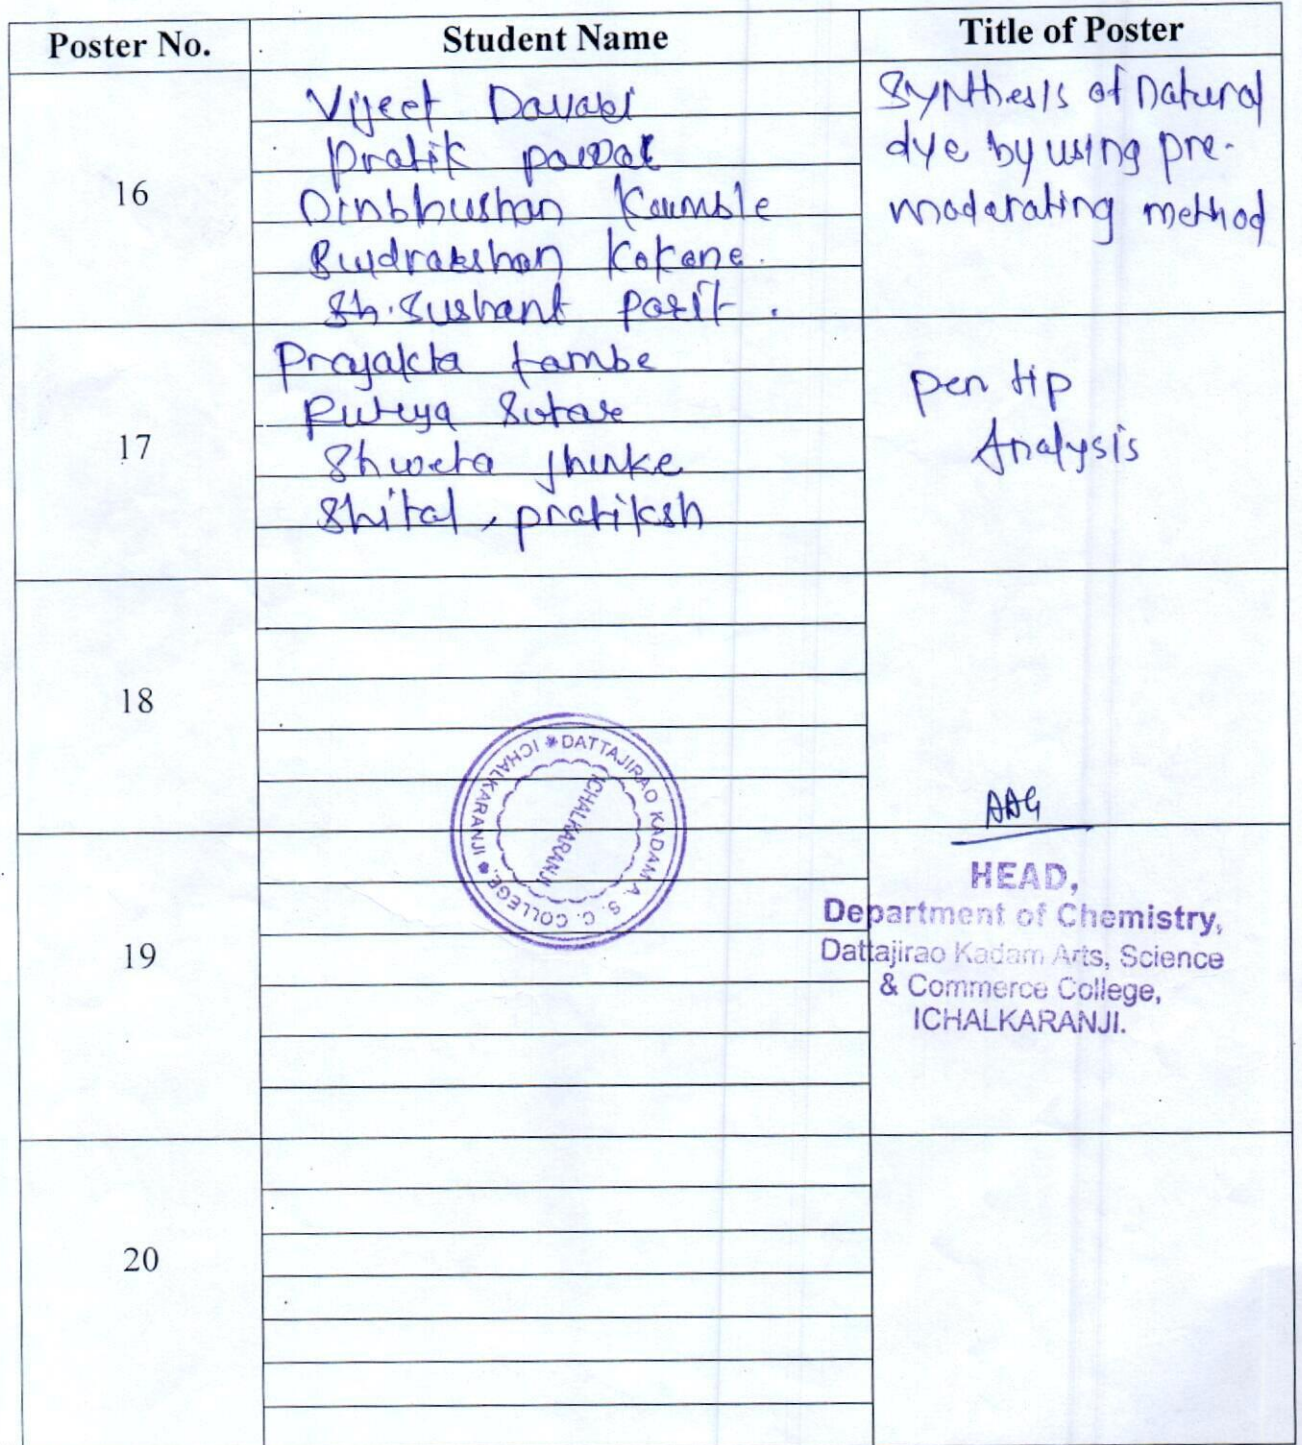 Poster No. Student Name Title of Poster
16
Vijeet
Pratik pawar
Dinbhushan Kaumble
Kokane.
Sh. Sushant Parit.
Synthesis of natural
dye by using pre-
moderating method
17
Prajakta tambe
Sutar
Shweta
Shital, pratiksh
pen tip
Analysis
18
19
20
DATTAJIRAO KADAM A. S. C. COLLEGE, ICHALKARANJI
ICHALKARANJI
HEAD,
Department of Chemistry,
Dattajirao Kadam Arts, Science
& Commerce College,
ICHALKARANJI.